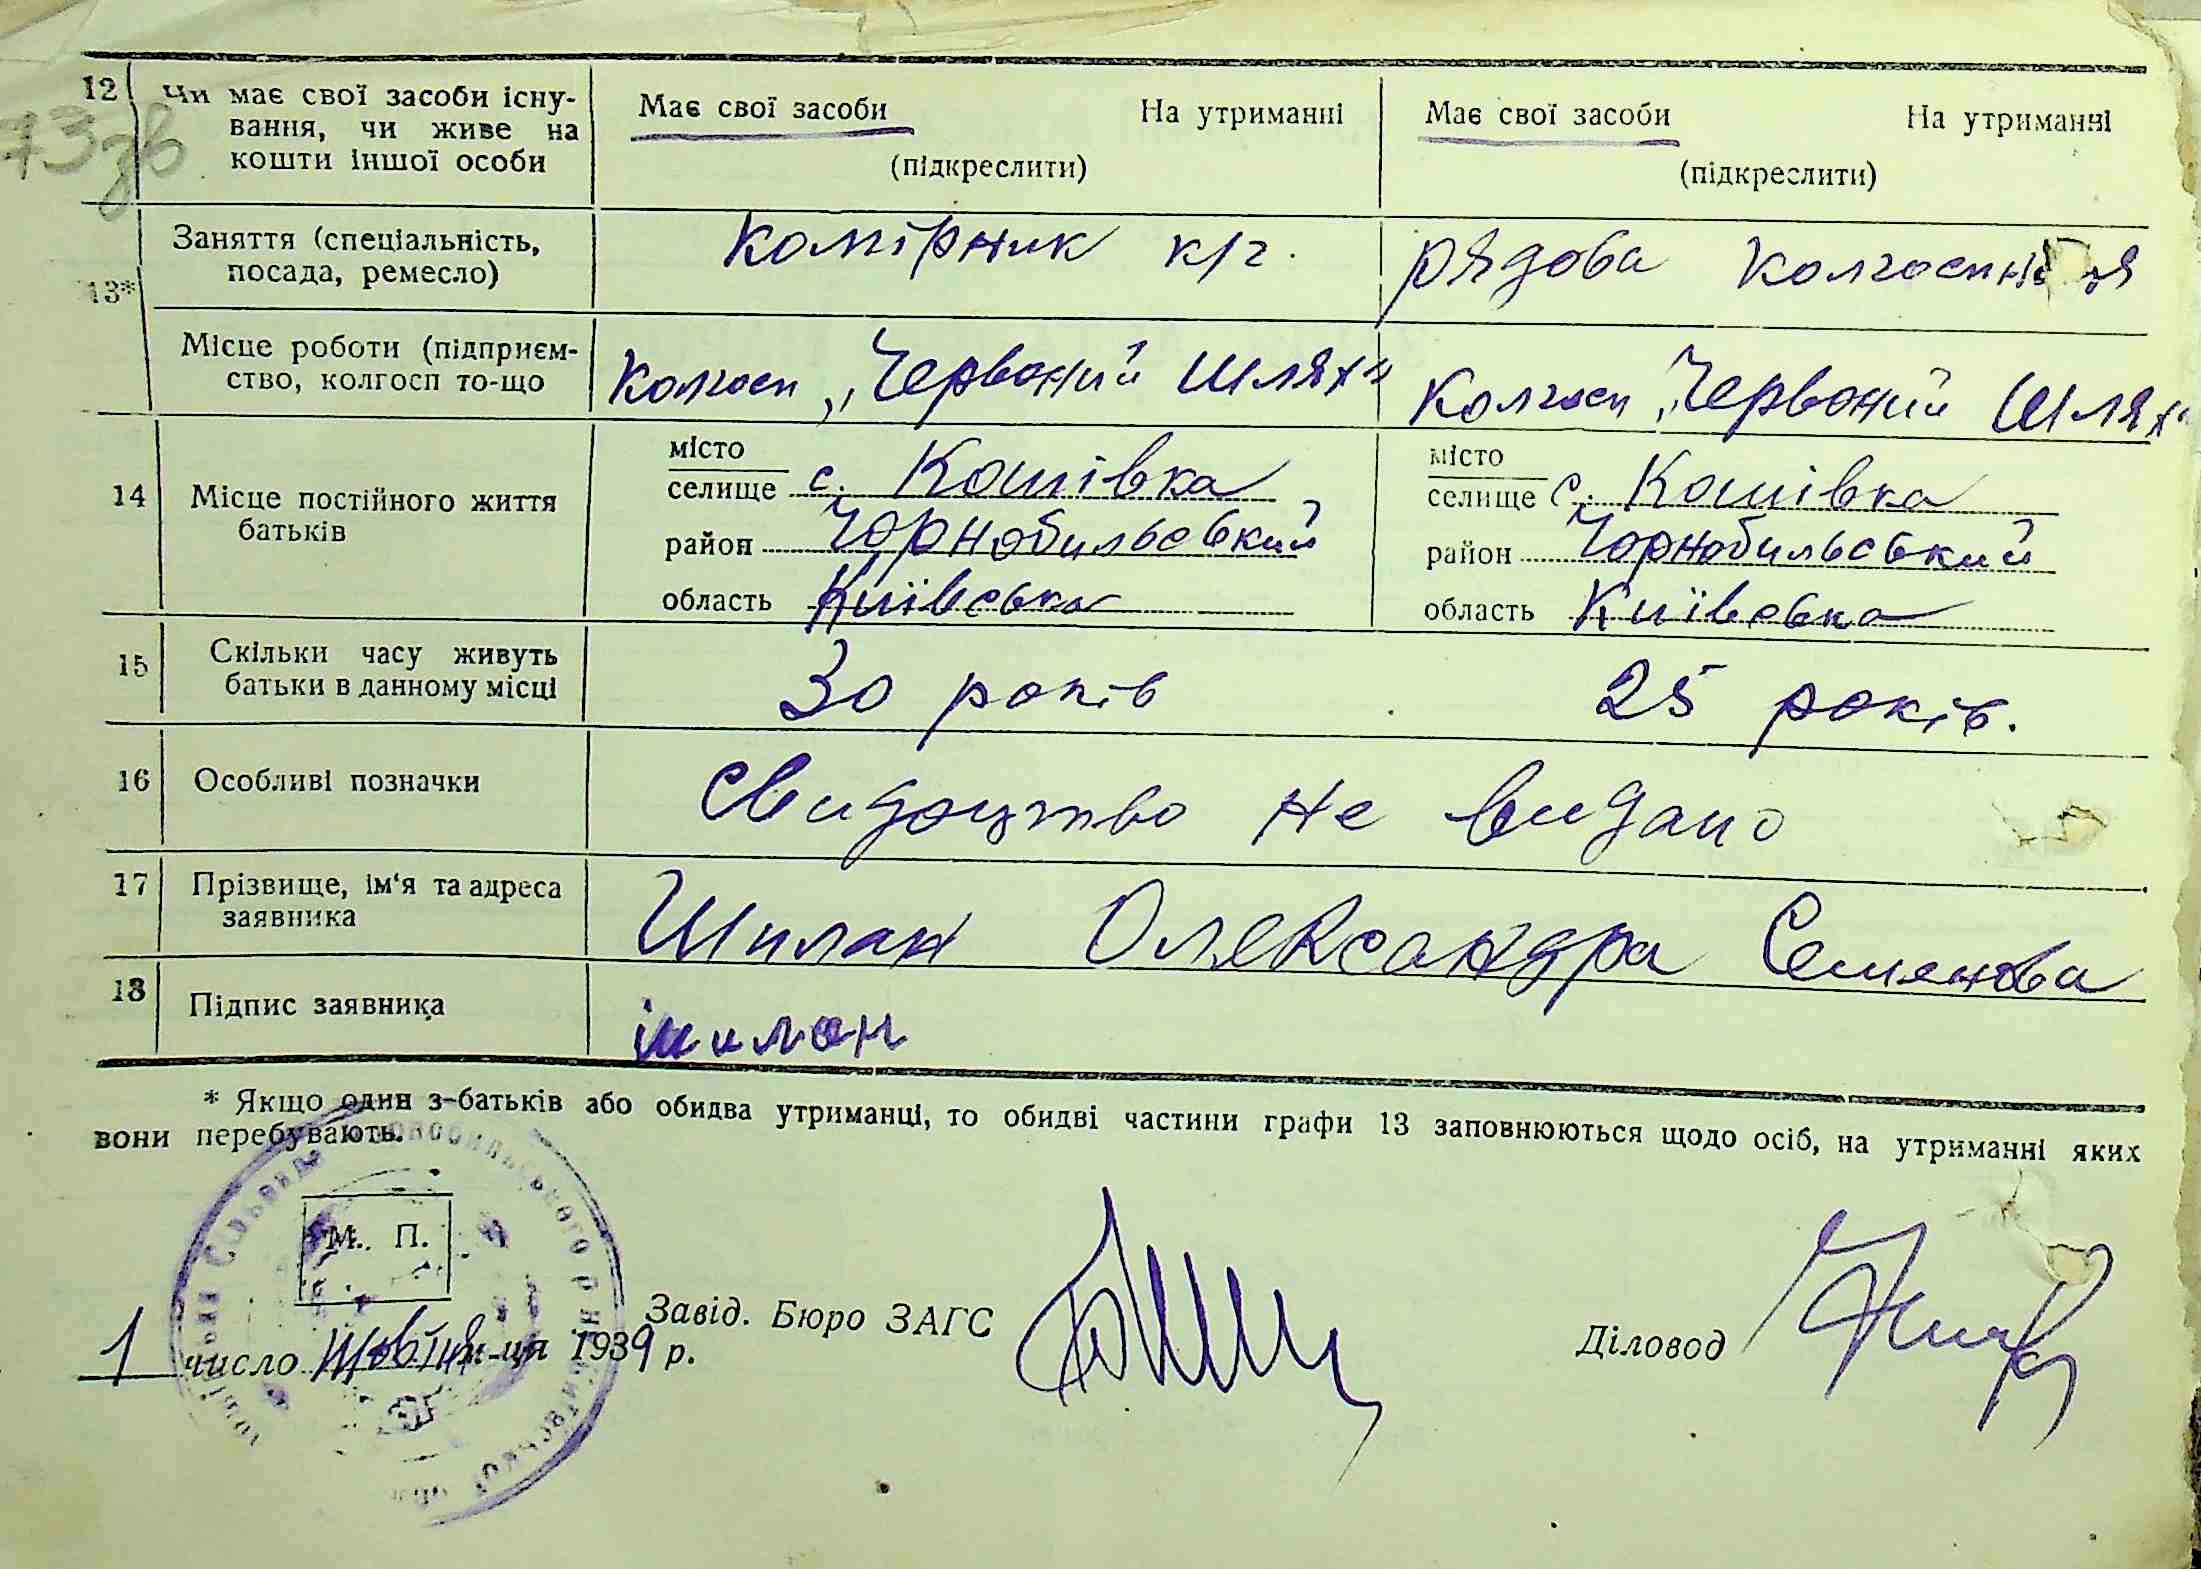 73 зв
12 Чи має свої засоби існу-
вання, чи живе на
кошти іншої особи
Має свої засоби На утриманні
(підкреслити)
Має свої засоби На утриманні
(підкреслити)
13*
Заняття (спеціальність,
посада, ремесло)
комірник к/г.
рядова колгоспниця
Місце роботи (підприєм-
ство, колгосп то-що
Колгосп „Червоний Шлях"
Колгосп „Червоний Шлях"
14 Місце постійного життя
батьків
місто
селище с. Кошівка
район Чорнобильський
область Київська
місто
селище с. Кошівка
район Чорнобильський
область Київська
15 Скільки часу живуть
батьки в данному місці
30 років
25 років.
16 Особливі позначки
Свидоцтво не видано
17 Прізвище, ім'я та адреса
заявника
Шилан Олександра Семенова
18 Підпис заявника
Шилан
* Якщо один з-батьків або обидва утриманці, то обидві частини графи 13 заповнюються щодо осіб, на утриманні яких
вони перебувають.
М. П.
1 число Жовтня м-ця 1939 р.
Завід. Бюро ЗАГС
Діловод